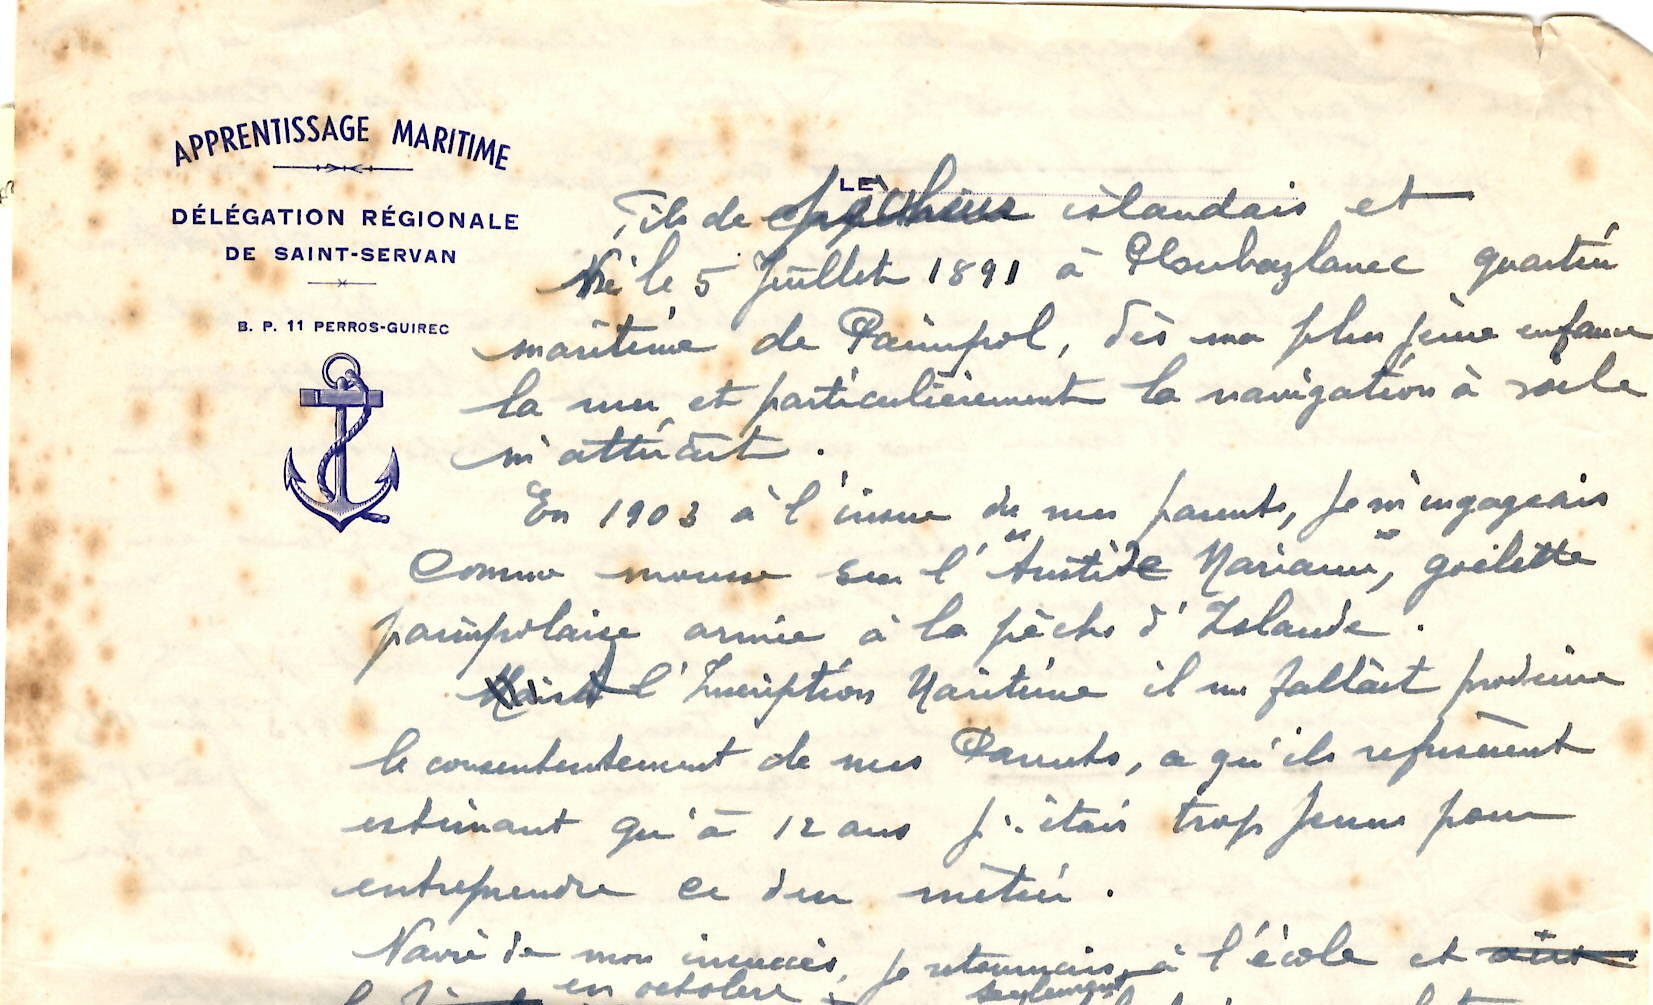 APPRENTISSAGE MARITIME
DÉLÉGATION RÉGIONALE
DE SAINT-SERVAN
B. P. 11 PERROS-GUIREC
LE
Fils de pêcheur islandais et
Né le 5 Juillet 1891 à Ploubazlanec quartier
maritime de Paimpol, dès ma plus jeune enfance
la mer et particulièrement la navigation à voile
m'attirait.
En 1903 à l'insu de mes parents, je m'engageais
comme mousse sur l'"Aristide Marianne", goëlette
paimpolaise armée à la pêche d'Islande.
Mais à l'Inscription Maritime il me fallait produire
le consententement de mes Parents, ce qu'ils refusèrent
estimant qu'à 12 ans j'étais trop jeune pour
entreprendre ce dur métier.
Navré de mon insuccès, je retournais à l'école et
en octobre seulement